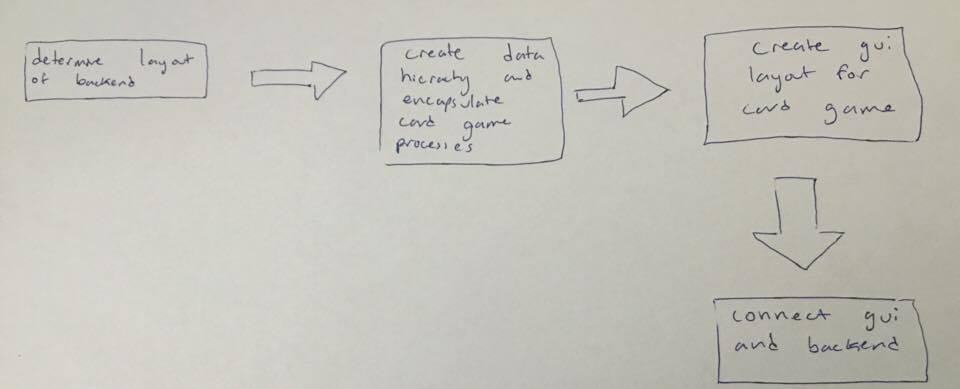 determine layout
of backend
create data
hierachy and
encapsulate
card game
processes
create gui
layout for
card game
connect gui
and backend